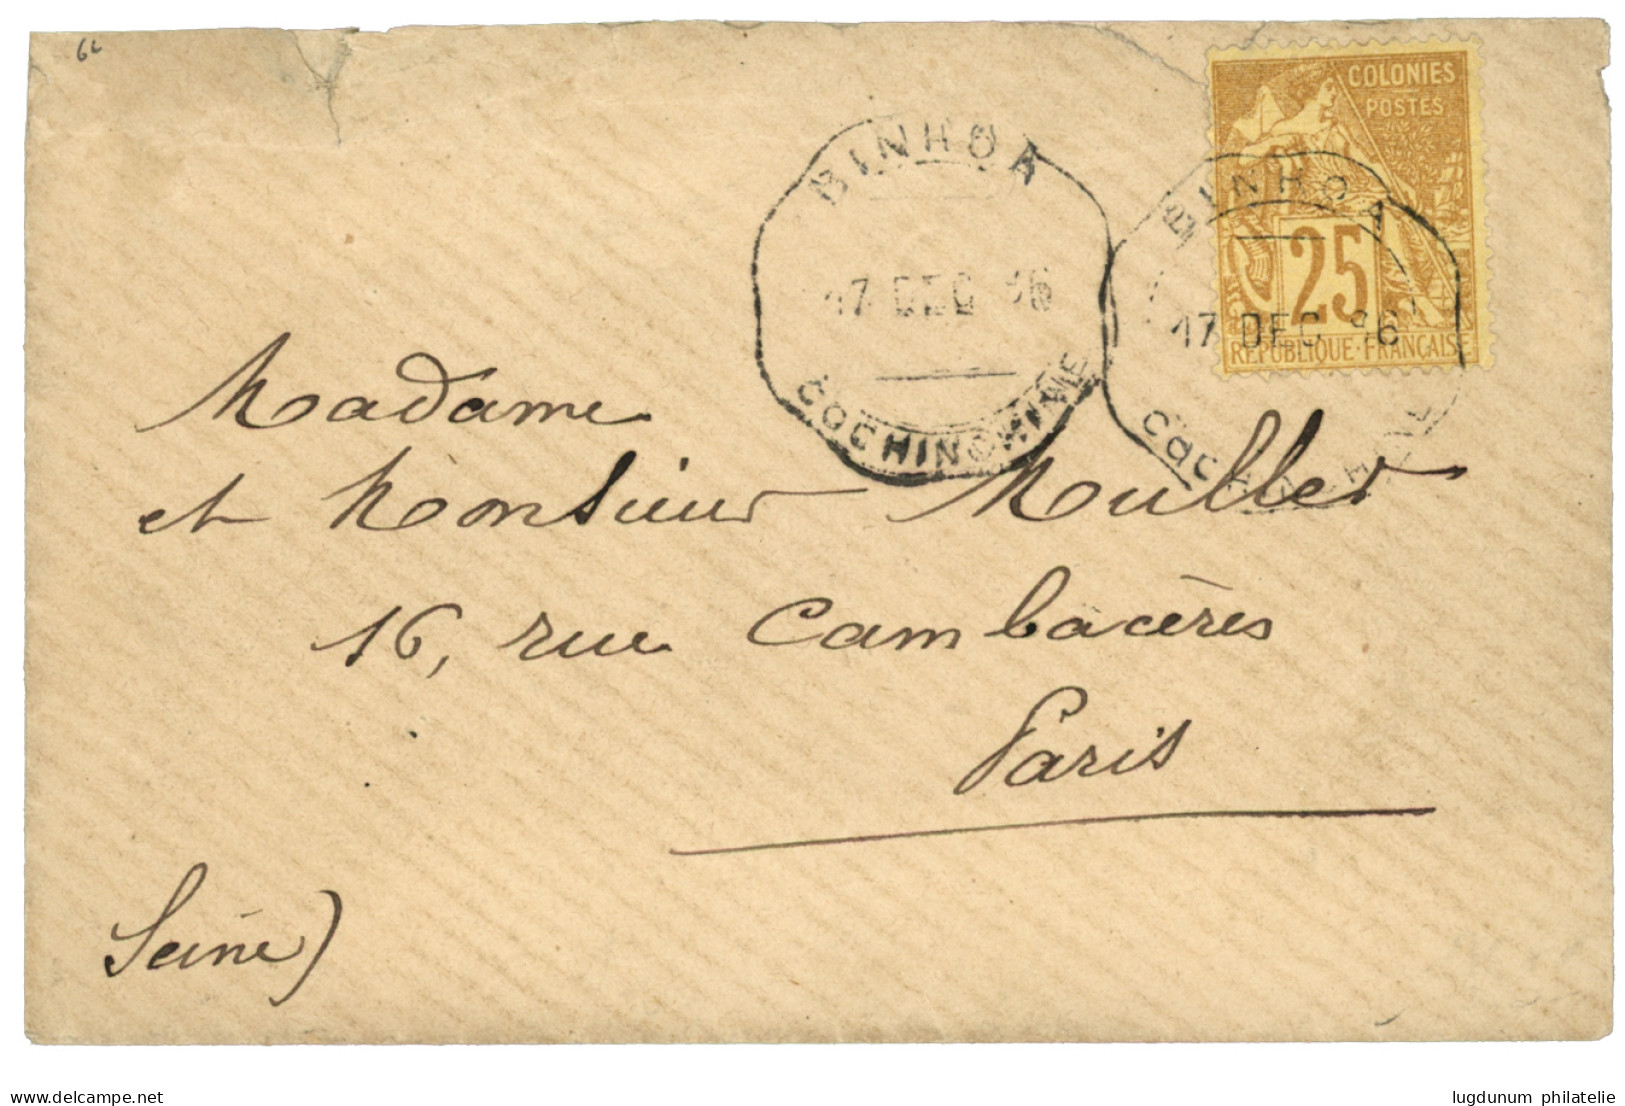 6c
COLONIES
POSTES
25
REPUBLIQUE·FRANÇAISE
BINHOA
17 DEC 86
COCHINCHINE
BINHOA
17 DEC 86
COCHINCHINE
Madame
et Monsieur Muller
16, rue Cambacérès
Paris
Seine)
lugdunum philatelie